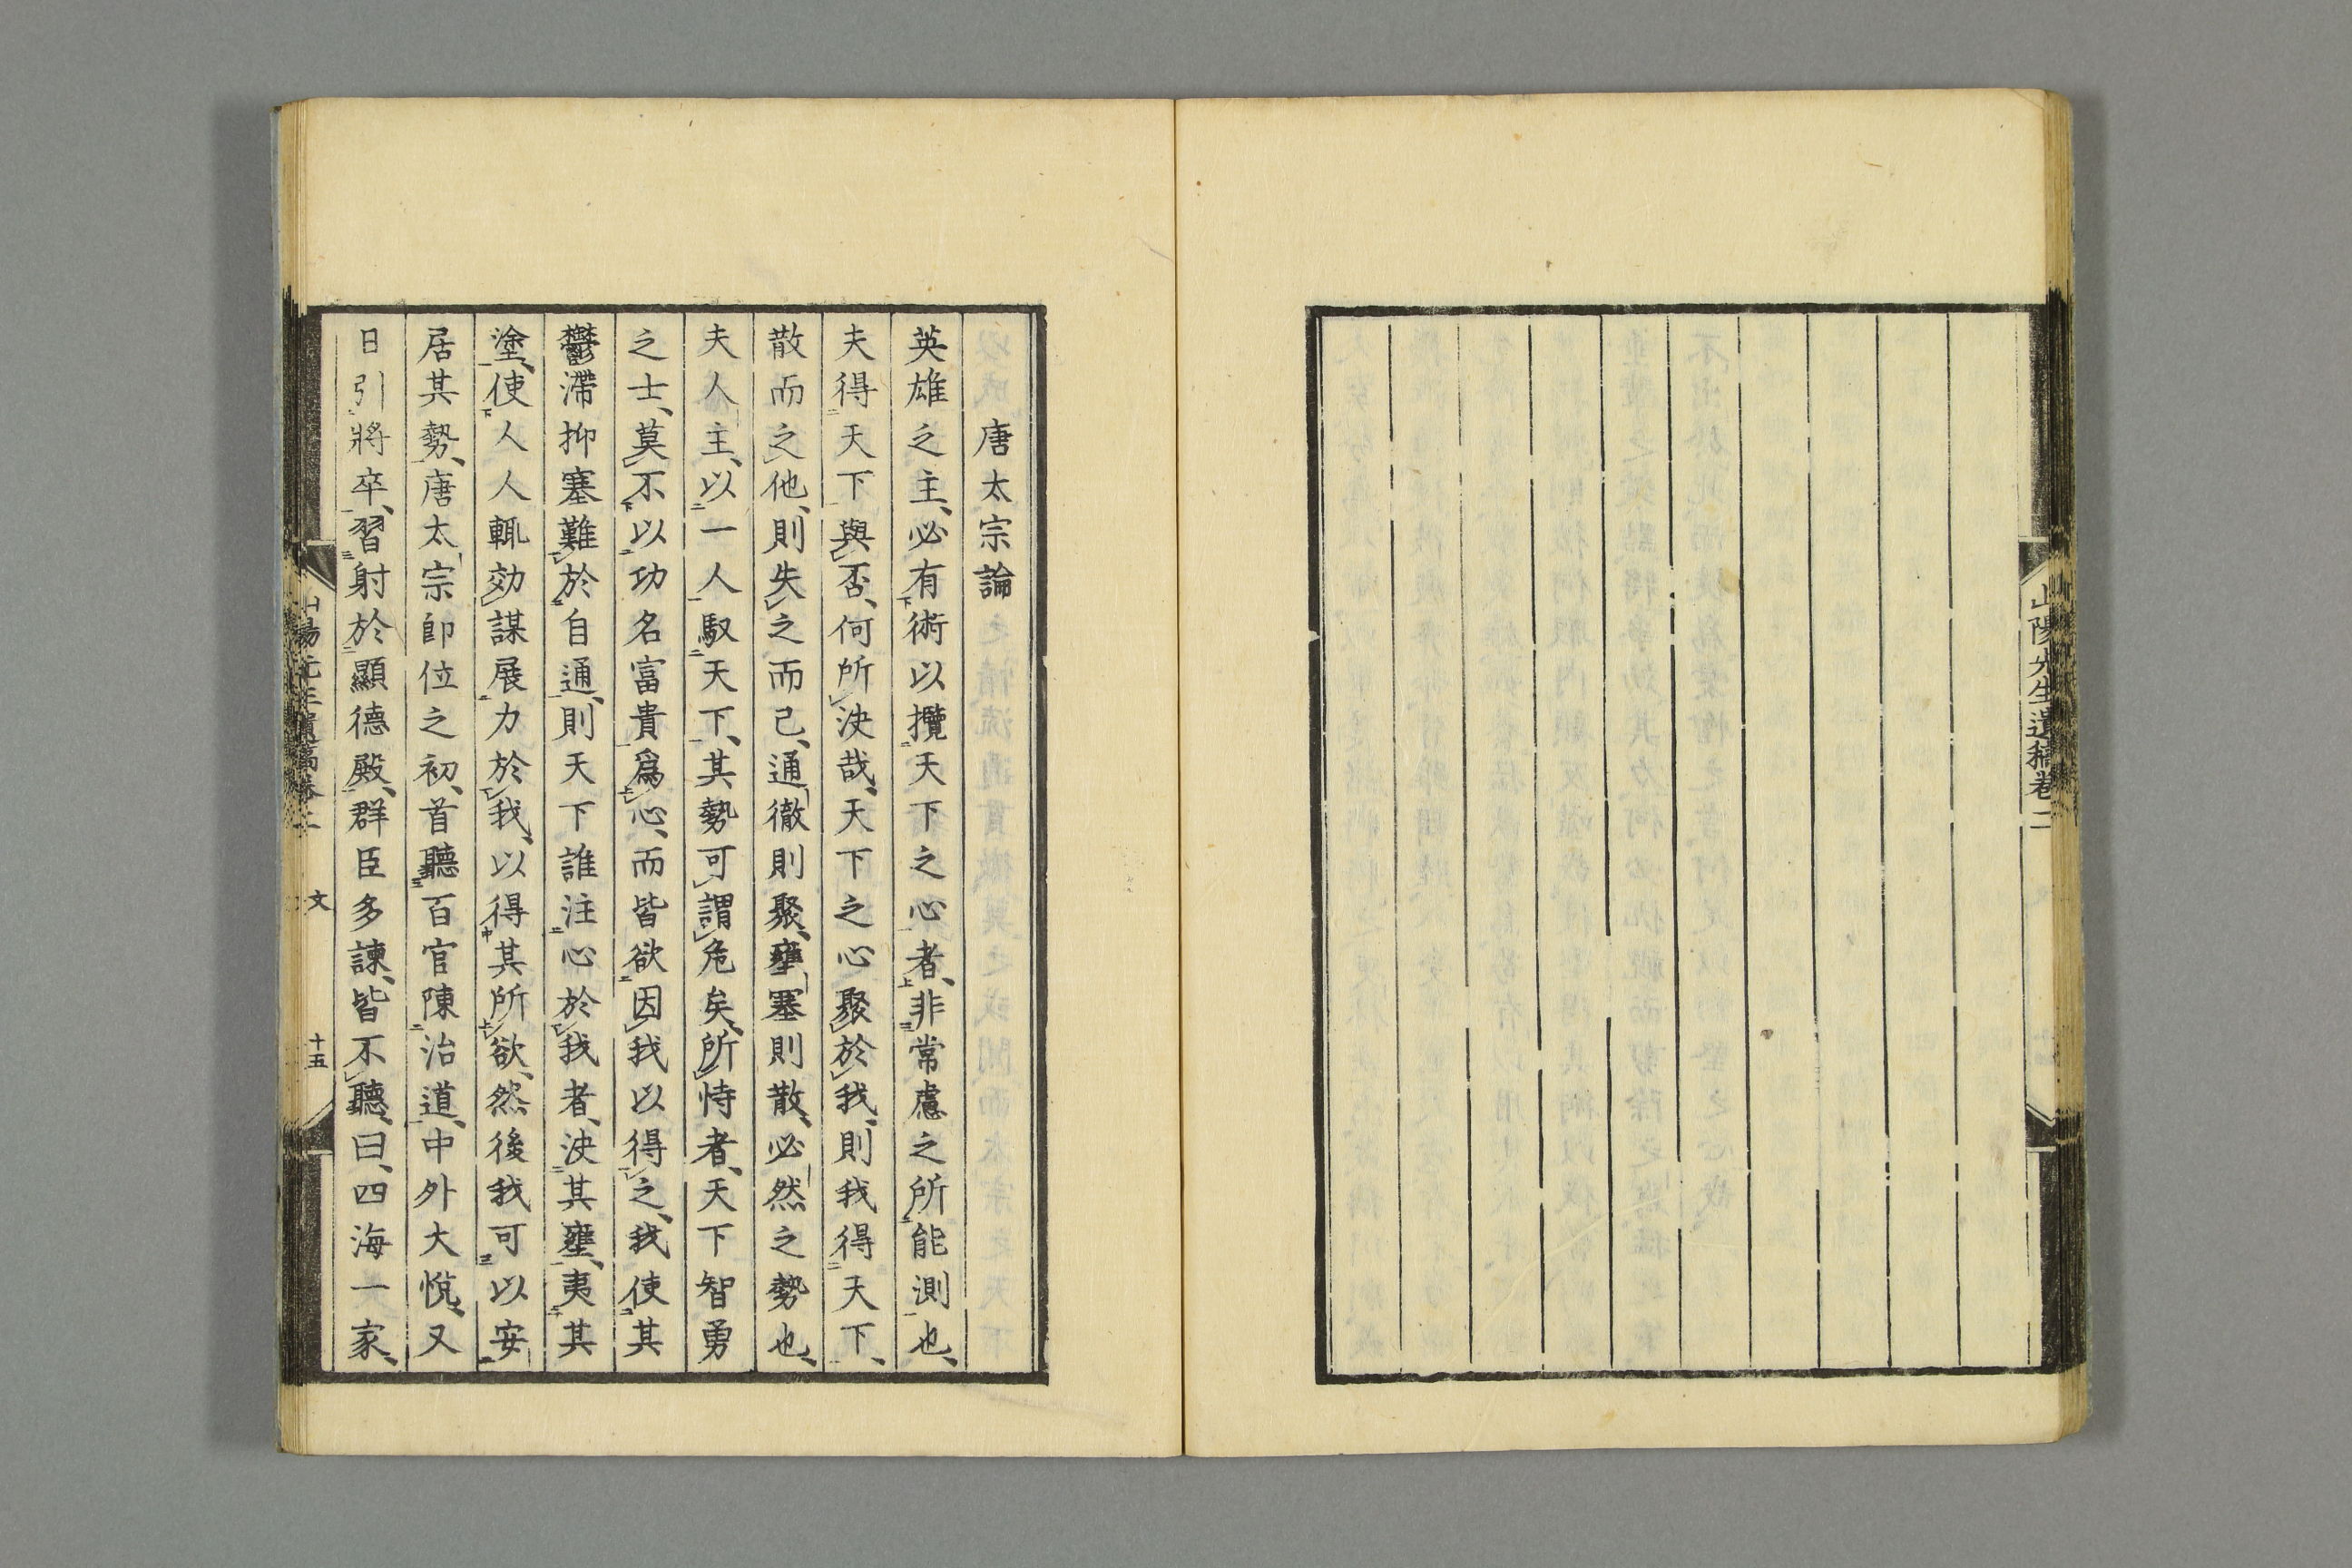 山陽先生遺稿卷二
唐太宗論
英雄之主、必有術以攬天下之心者、非常慮之所能測也、
夫得天下與否、何所決哉、天下之心聚於我、則我得天下、
散而之他、則失之而已、通徹則聚、壅塞則散、必然之勢也、
夫人主、以一人馭天下、其勢可謂危矣、所恃者、天下智勇
之士、莫不以功名富貴爲心、而皆欲因我以得之、我使其
鬱滯抑塞難於自通、則天下誰注心於我者、決其壅、夷其
塗、使人人輒効謀展力於我、以得其所欲、然後我可以安
居其勢、唐太宗卽位之初、首聽百官陳治道、中外大悅、又
日引將卒、習射於顯德殿、群臣多諫、皆不聽、曰、四海一家、
山陽先生遺稿卷二 文 十五